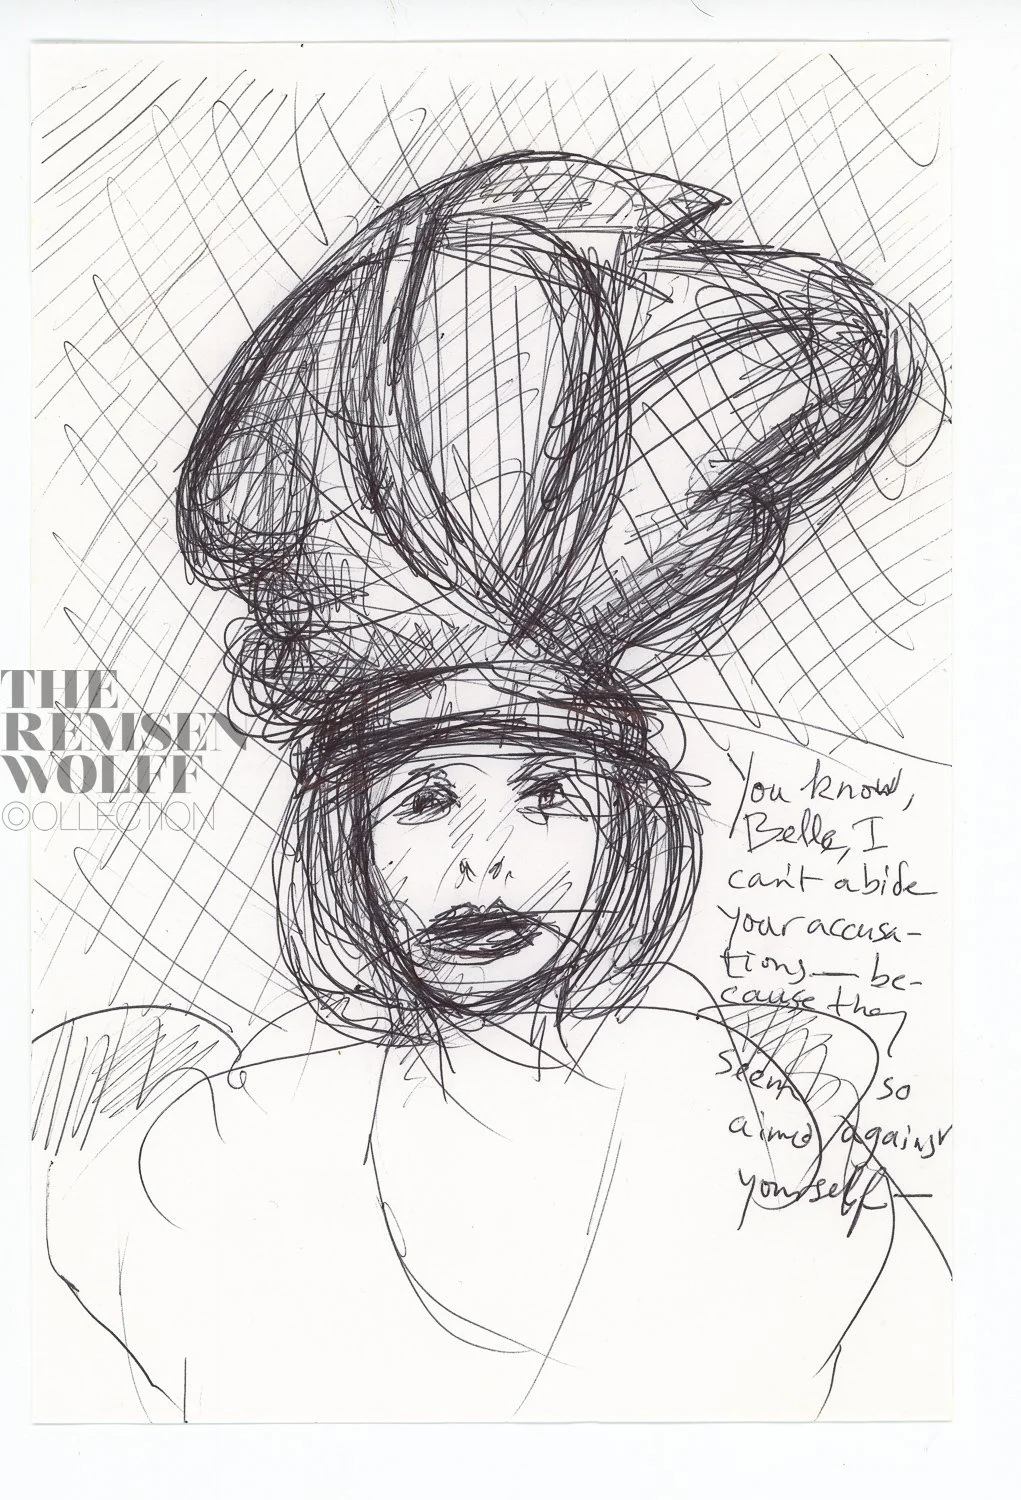 THE
REMSEN
WOLFF
©OLLECTION
You know,
Bella, I
can't abide
your accusa-
tions — be-
cause they
seem so
aimed against
yourself —